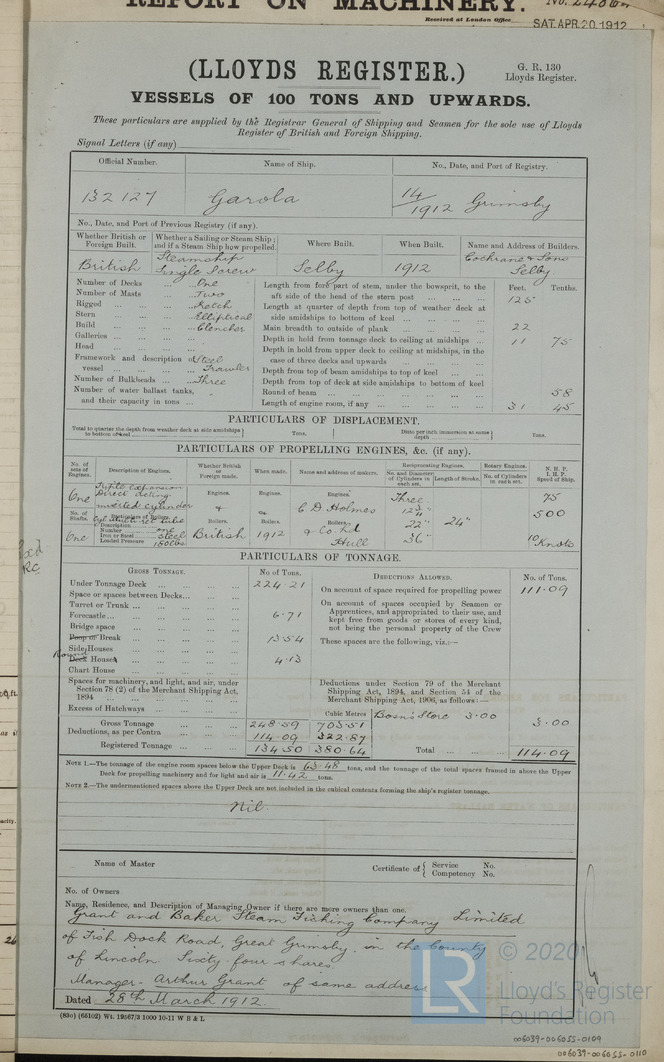 REPORT ON MACHINERY. No.
Received at London Office SAT. APR. 20 1912
(LLOYDS REGISTER.)
G. R. 130
Lloyds Register.
VESSELS OF 100 TONS AND UPWARDS.
These particulars are supplied by the Registrar General of Shipping and Seamen for the sole use of Lloyds
Register of British and Foreign Shipping.
Signal Letters (if any)
Official Number. Name of Ship. No., Date, and Port of Registry.
132127 Garola 14/1912 Grimsby
No., Date, and Port of Previous Registry (if any).
Whether British or Foreign Built. Whether a Sailing or Steam Ship; and if a Steam Ship how propelled. Where Built. When Built. Name and Address of Builders.
British Steamship Single Screw Selby 1912 Cochrane & Sons Selby
Number of Decks ... One
Number of Masts ... Two
Rigged ... Ketch
Stern ... Elliptical
Build ... Clencher
Galleries ...
Head ...
Framework and description of vessel ... Steel Trawler
Number of Bulkheads ... Three
Number of water ballast tanks, and their capacity in tons ... -
Feet. Tenths.
Length from fore part of stem, under the bowsprit, to the aft side of the head of the stern post ... 125
Length at quarter of depth from top of weather deck at side amidships to bottom of keel ...
Main breadth to outside of plank ... 22
Depth in hold from tonnage deck to ceiling at midships ... 11 75
Depth in hold from upper deck to ceiling at midships, in the case of three decks and upwards ...
Depth from top of beam amidships to top of keel ...
Depth from top of deck at side amidships to bottom of keel
Round of beam ... 58
Length of engine room, if any ... 31 45
PARTICULARS OF DISPLACEMENT.
Total to quarter the depth from weather deck at side amidships to bottom of keel Tons. Ditto per inch immersion at same depth Tons.
PARTICULARS OF PROPELLING ENGINES, &c. (if any).
No. of sets of Engines. Description of Engines. Whether British or Foreign made. When made. Name and address of makers. Reciprocating Engines. Rotary Engines. N. H. P. I. H. P. Speed of Ship.
No. and Diameter of Cylinders in each set. Length of Stroke. No. of Cylinders in each set.
One Triple expansion Direct acting inverted cylinder Engines. Engines. Engines. Three 75
No. of Shafts. Particulars of Boilers. & & C D Holmes 12¾" 500
Description Cyl Multi rec tube
Number one Boilers. Boilers. Boilers. 22" 24"
One Iron or Steel steel British 1912 & Co Ld 36" 10 Knots
Loaded Pressure 180 lbs Hull
PARTICULARS OF TONNAGE.
GROSS TONNAGE. No of Tons. DEDUCTIONS ALLOWED. No. of Tons.
Under Tonnage Deck ... 224.21 On account of space required for propelling power 111.09
Space or spaces between Decks...
Turret or Trunk ...
Forecastle... 6.71
Bridge space
Poop or Break ... 13.54
Side Houses
Round Deck Houses ... 4.13
Chart House ...
On account of spaces occupied by Seamen or Apprentices, and appropriated to their use, and kept free from goods or stores of every kind, not being the personal property of the Crew
These spaces are the following, viz.:—
Spaces for machinery, and light, and air, under Section 78 (2) of the Merchant Shipping Act, 1894 ...
Excess of Hatchways
Deductions under Section 79 of the Merchant Shipping Act, 1894, and Section 54 of the Merchant Shipping Act, 1906, as follows:—
Cubic Metres Bosn's Store 3.00 3.00
Gross Tonnage ... 248.59 703.51
Deductions, as per Contra ... 114.09 322.87
Registered Tonnage ... 134.50 380.64 Total ... 114.09
NOTE 1.—The tonnage of the engine room spaces below the Upper Deck is 63.48 tons, and the tonnage of the total spaces framed in above the Upper
Deck for propelling machinery and for light and air is 11.42 tons.
NOTE 2.—The undermentioned spaces above the Upper Deck are not included in the cubical contents forming the ship's register tonnage.
Nil.
Name of Master Certificate of { Service No. Competency No.
No. of Owners
Name, Residence, and Description of Managing Owner if there are more owners than one.
Grant and Baker Steam Fishing Company Limited
of Fish Dock Road, Great Grimsby, in the County
of Lincoln Sixty four shares
Manager - Arthur Grant of same address
Dated 28th March 1912.
(85o) (65102) Wt. 19567/3 1000 10-11 W B & L
© 2020
LR Lloyd's Register
Foundation
006039-006055-0109
006039-006055-0110